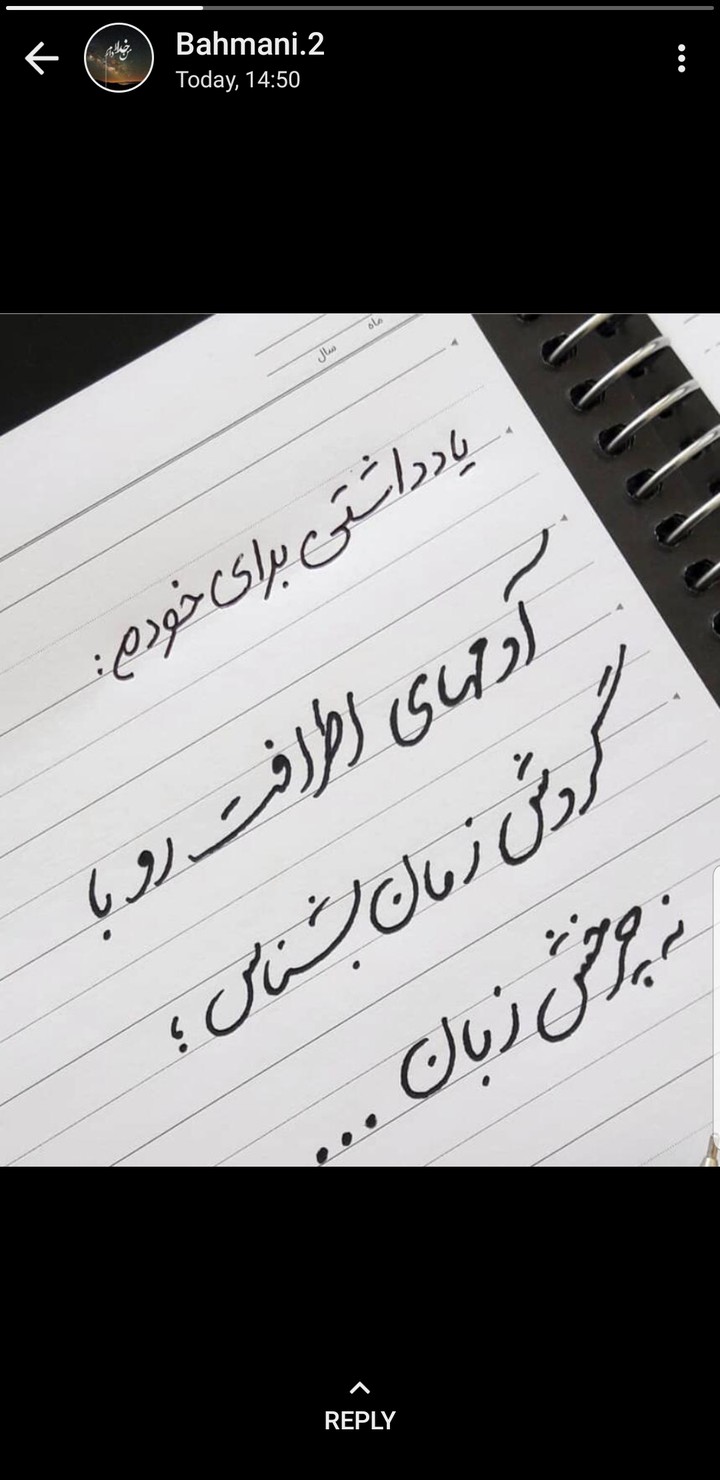 Bahmani.2
Today, 14:50
ماه
سال
یادداشتی برای خودم :
آدمهای اطرافت رو با
گردش زمان بشناس ؛
نه چرخش زبان ...
REPLY